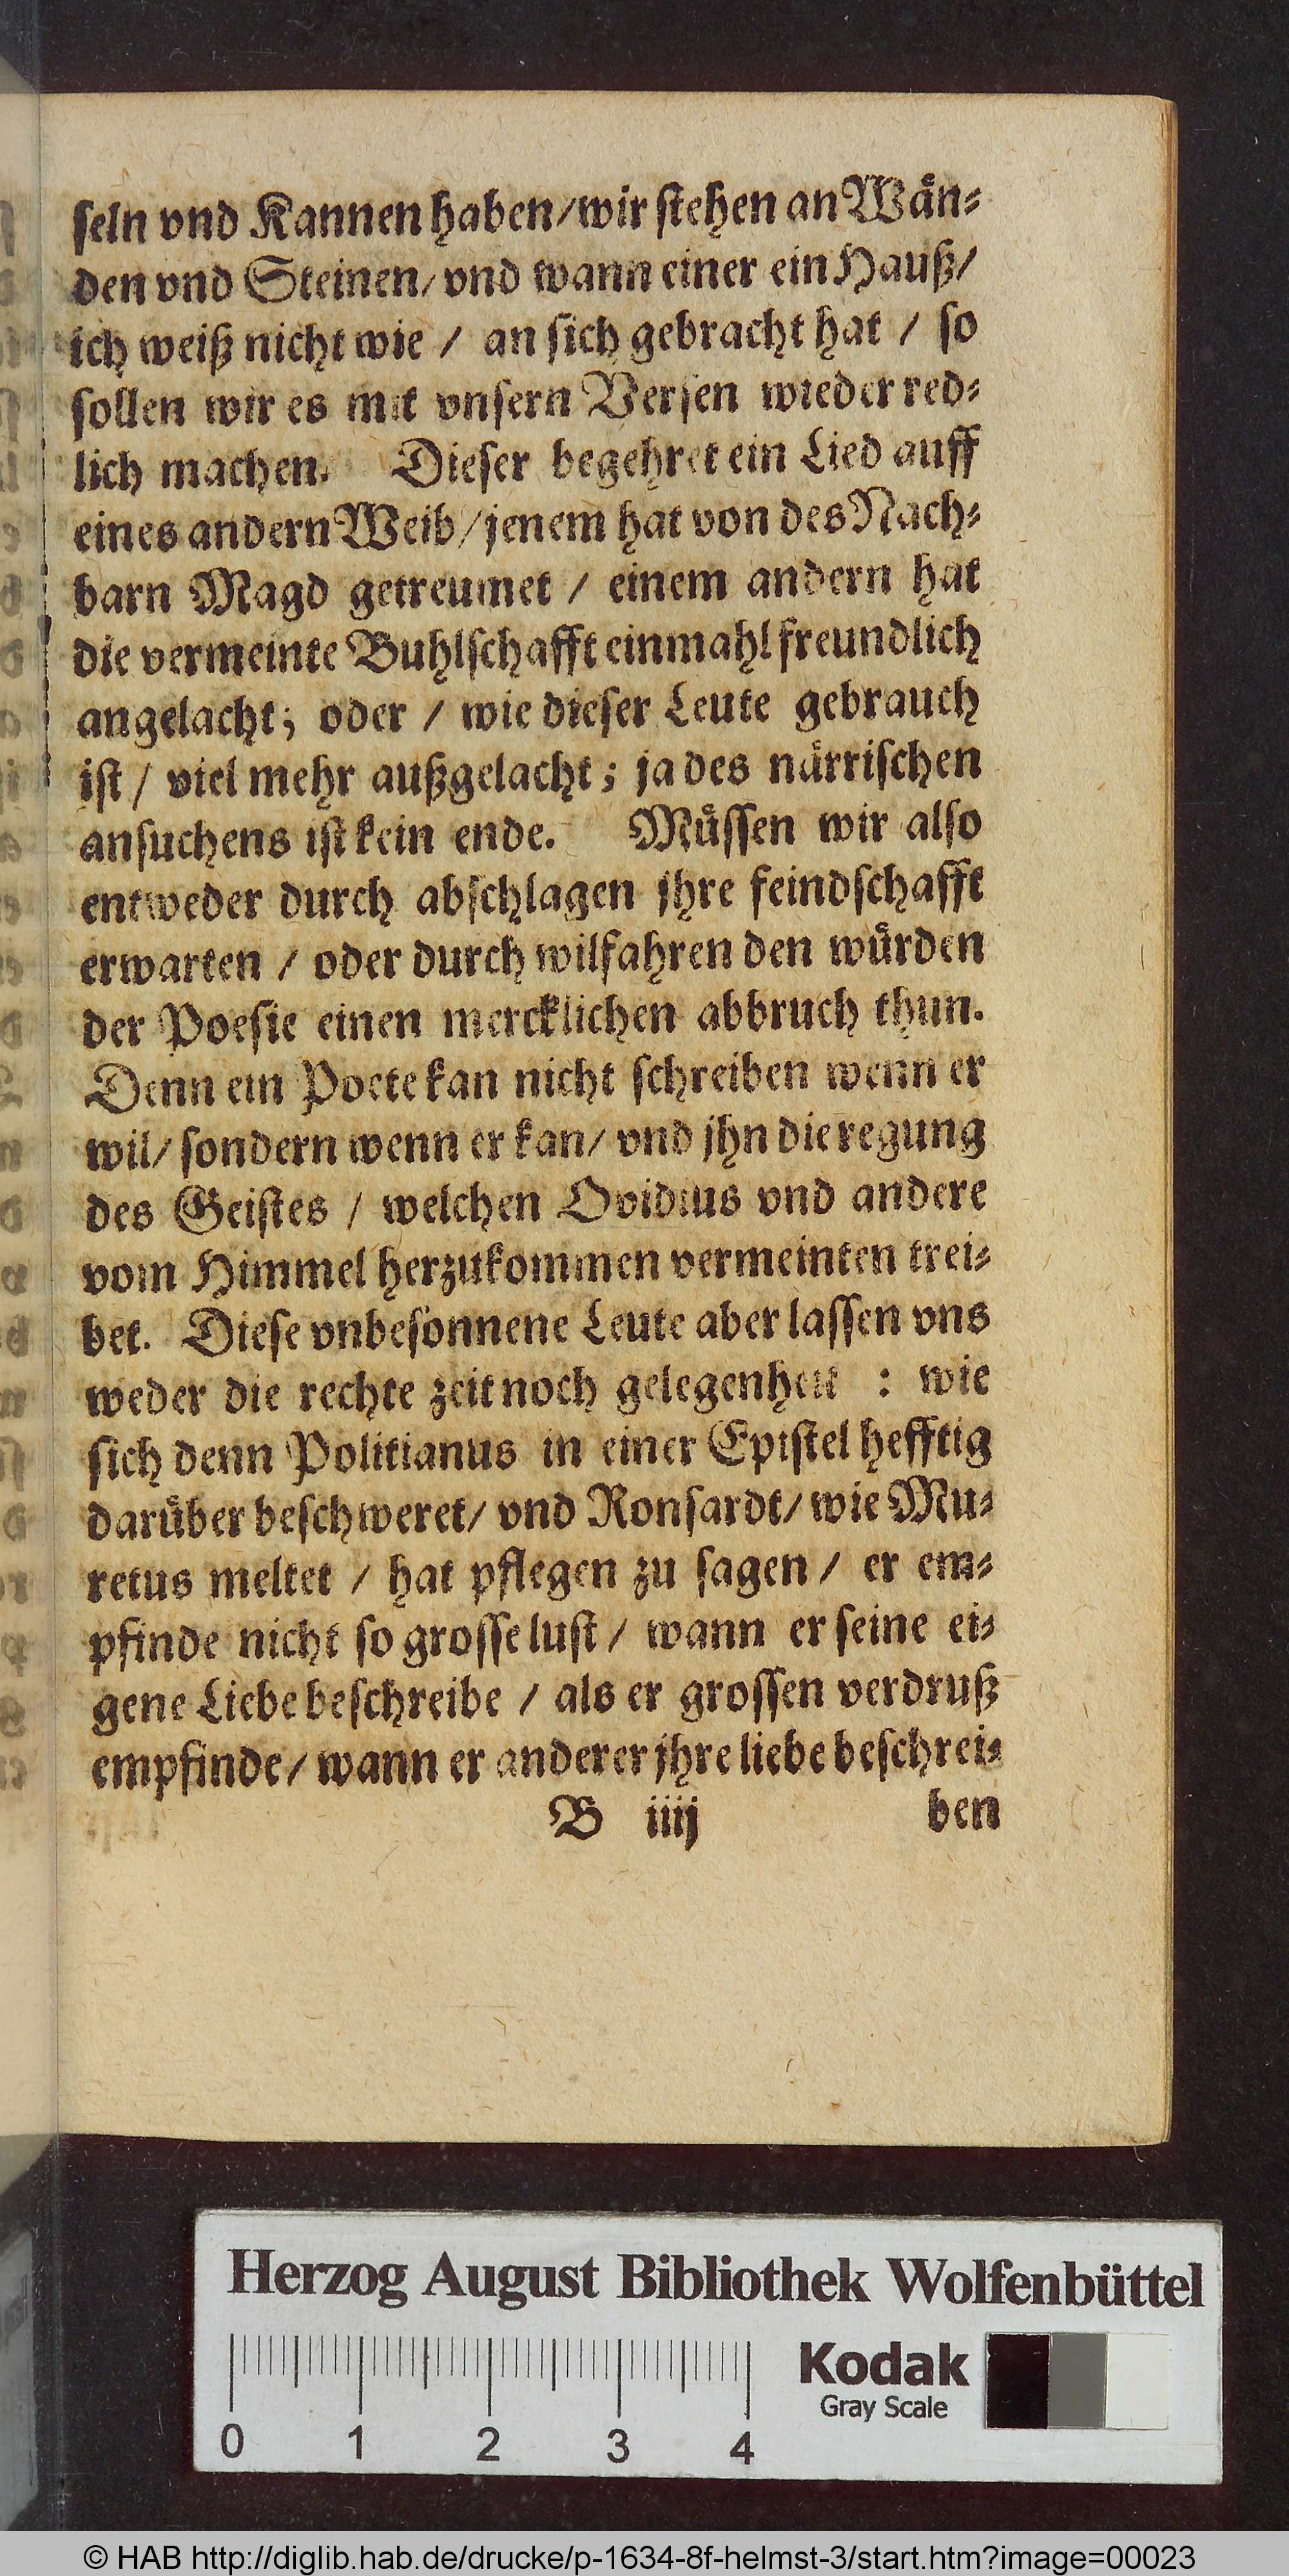 seln vnd Kannen haben/wir stehen an Wän-
den vnd Steinen/ vnd wann einer ein Hauß/
ich weiß nicht wie / an sich gebracht hat / so
sollen wir es mit vnsern Versen wieder red-
lich machen. Dieser begehret ein Lied auff
eines andern Weib/ jenem hat von des Nach-
barn Magd getreumet / einem andern hat
die vermeinte Buhlschafft einmahl freundlich
angelacht; oder / wie dieser Leute gebrauch
ist / viel mehr außgelacht; ja des närrischen
ansuchens ist kein ende. Müssen wir also
entweder durch abschlagen jhre feindschafft
erwarten / oder durch wilfahren den würden
der Poesie einen mercklichen abbruch thun.
Denn ein Poete kan nicht schreiben wenn er
wil/ sondern wenn er kan/ vnd jhn die regung
des Geistes / welchen Ovidius vnd andere
vom Himmel herzukommen vermeinten trei-
bet. Diese vnbesonnene Leute aber lassen vns
weder die rechte zeit noch gelegenheit : wie
sich denn Politianus in einer Epistel hefftig
darüber beschweret/ vnd Ronsardt/ wie Mu-
retus meltet / hat pflegen zu sagen / er em-
pfinde nicht so grosse lust / wann er seine ei-
gene Liebe beschreibe / als er grossen verdruß
empfinde/ wann er anderer jhre liebe beschrei-
B iiij ben
Herzog August Bibliothek Wolfenbüttel
Kodak
Gray Scale
0 1 2 3 4
© HAB http://diglib.hab.de/drucke/p-1634-8f-helmst-3/start.htm?image=00023